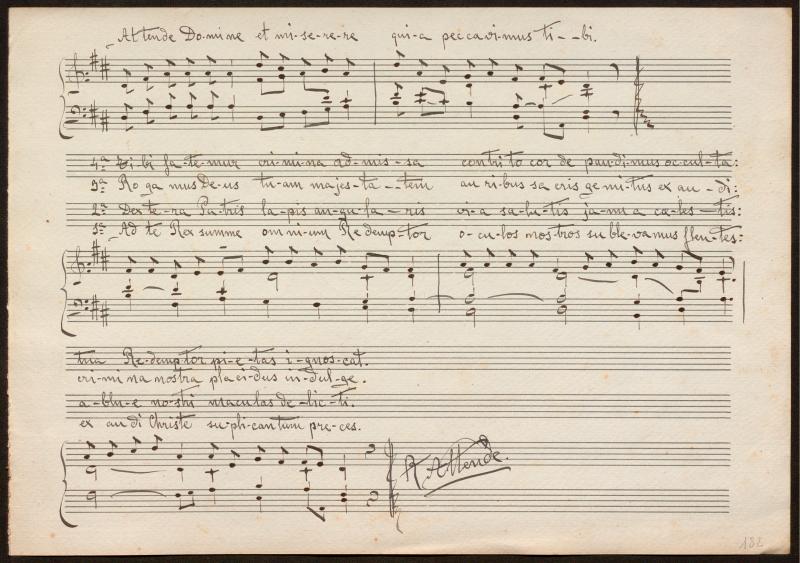 Attende Do-mine et mi-se-re-re qui-a peccavi-mus ti--bi.
4ª Ti-bi fa-te-mur cri-mi-na ad-mis-sa contrito cor de pan-di-mus oc-cul-ta:
3ª Ro ga mus De-us tu-am majes-ta-tem au ri-bus sa cris ge mi-tus ex au-di:
2ª Dex te-ra Pa-tris la-pis an-gu-la-ris vi-a sa-lu-tis ja-nu a cœ-les-tis:
1ª Ad te Rex summe om ni-um Re demp tor o-cu-los nos tros su ble-va mus flen-tes:
tua Re-demp tor pi-e-tas i-gnos-cat.
cri-mi na nostra pla ci-dus in-dul-ge.
a-blu-e nos-tri maculas de-lic-ti.
ex au di Christe su-pli-cantum pre-ces.
Attende.
182